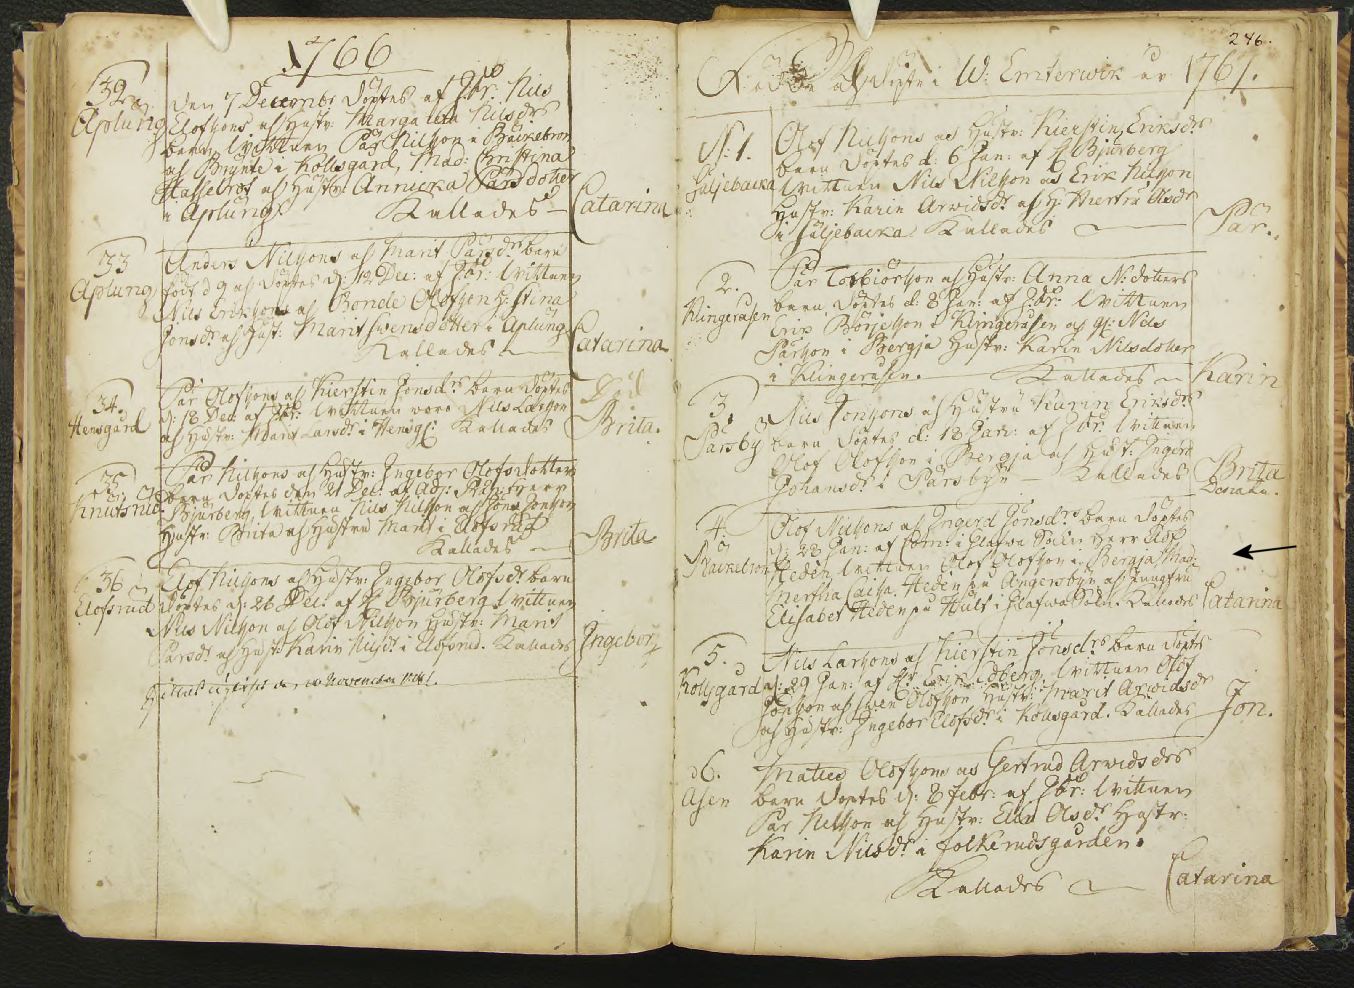 1766
32
Aplung
Den 7 Decembr Döptes af Nils
Elofsons af Hustr: Margareta Nilsdr
barn, Wittnen Pär Nilson i Bäckebron
af Brynte i Kollsgard, Mad: Christina
af Hustr Annicka Larsdotter
i Aplung Kallades – Catarina
33
Aplung
Anders Nilsons af Marit Pärsdr barn
född d 9 af Döptes d: 12 Dec: af Wittnen
Nils Eriksons af Bonde Olofson H: Stina
Jonsdr af Hust: Marit Swensdotter i Aplung
Kallades Catarina
34.
Hemsgård
Pär Olofsons af Kierstin Jonsdrs barn Döptes
d: 18 Dec af Wittnen wore Nils Larson
af Hustr: Marit Larsdr i Hemsg: Kallades Brita.
35
Knutsrud
Pär Nilsons af Hustr: Ingebor Olofsdotters
barn Döptes den 21 Dec: af Adj:
Bjurberg, Wittnen Nils Nilson af Jöns Jonson
Hustr: Brita af Hustru Marit i Elofsrud
Kallades – Brita
36
Elofsrud
Elof Nilsons af Hustr: Ingebor Olofsdr barn
Döptes d: 26 Dec: af H Bjurberg, Wittnen
Nils Nilson af Olof Nilson Hustr: Marit
Larsdr af Hust: Karin Nilsdr i Elofsrud. Kallades Ingebor
246.
Födde Döpte i W: Emterwik år 1767.
N: 1.
Säljebacka
Olof Nilsons af Hustr: Kierstin Eriksdr
barn Döptes d: 6 Jan: af H Bjurberg
Wittnen Nils Nilson af Erik Nilson
Hustr: Karin Arwidsdr af H: Merta Olsdr
i Säljebacka Kallades – Pär.
2.
Klingeråsen
Pär Torbiörson af Hustr: Anna N:dotters
barn Döptes d: 8 Jan: af Wittnen
Erik Börjeson i Klingeråsen af Nils
Lärson i Bergja Hustr: Karin Nilsdotter
i Klingeråsen. Kallades – Karin
3.
Pärsby
Nils Jonsons af Hustru Karin Eriksdrs
barn Döptes d: 18 Jan: af Wittnen
Olof Olofson i Bergja af Hust: Ingerd
Johansdr i Pärsbyn – Kallades Brita
4.
Bäckebron
Olof Nilsons af Ingerd Jonsdrs barn Döptes
d: 28 Jan: af Com: i Glafwa Sokn Herr
Heden, Wittnen Olof Olofson i Bergja Mad:
Mertha Caisa Heden på Ängersbyn af Jungfru
Elisabet Heden på Hult i Glafwa Sokn. Kallades Catarina
5.
Kollsgard
Nils Larsons af Kierstin Jonsdrs barn Döpts
d: 29 Jan: af Wittnen Olof
Jonson af Swen Olofson Hustr: Marit Arwidsdr
af Hustr: Ingebor Elofsdr i Kollsgard. Kallades Jon.
6.
Åsen
Mattes Olofsons af Gertrud Arwidsdrs
barn Döptes d: 8 Febr: af Wittnen
Pär Nilson af Hustr: Elin Olsdr Hustr:
Karin Nilsdr i Folkerudsgården.
Kallades – Catarina